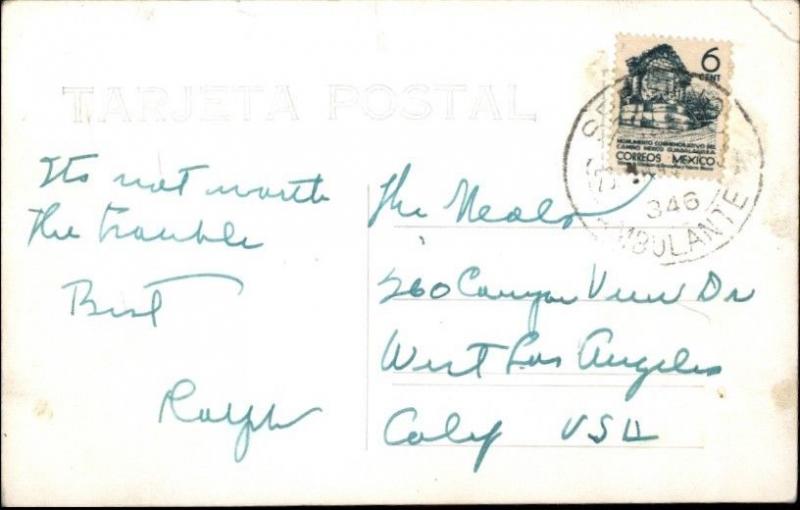 TARJETA POSTAL
6
CENT
MONUMENTO CONMEMORATIVO DEL
CAMINO MEXICO GUADALAJARA
CORREOS MEXICO
346
AMBULANTE
Its not worth
the trouble
Best
Ralph
The Neals
260 Canyon View Dr
West Los Angeles
Calif USA